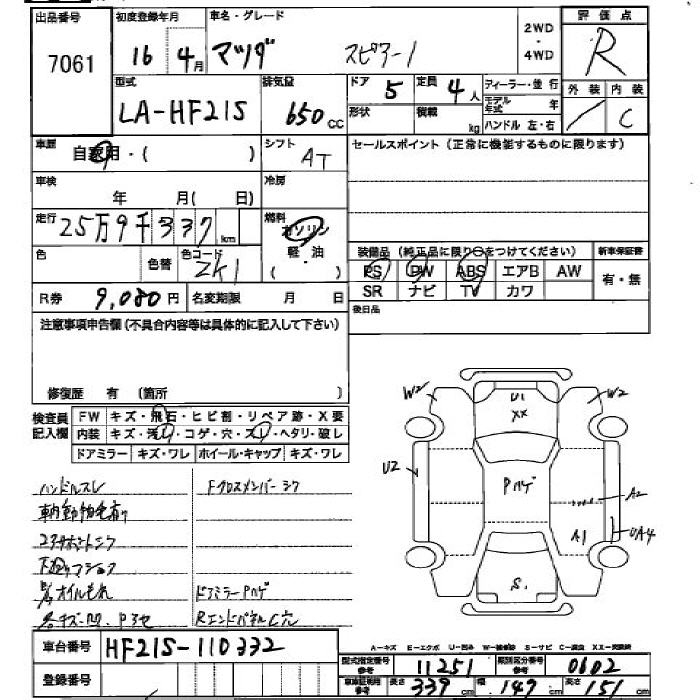 出品番号 7061
初度登録年月 16 4月
車名・グレード マツダ スピアーノ
2WD・4WD
評価点 R
外装 内装
/ C
型式 LA-HF21S
排気量 650cc
ドア 5 定員 4人
形状 積載 kg
ディーラー・並行
モデル年式 年
ハンドル 左・右
車歴 自家用・( )
シフト AT
セールスポイント (正常に機能するものに限ります)
車検 年 月( 日)
冷房
走行 25万9千337km
燃料 ガソリン・軽油・( )
色 色替 色コード ZK1
装備品 (純正品に限り○をつけてください) 新車保証書
PS PW ABS エアB AW 有・無
SR ナビ TV カワ
R券 9,080円 名変期限 月 日
後日品
注意事項申告欄(不具合内容等は具体的に記入して下さい)
修復歴 有 (箇所 )
検査員記入欄
FW キズ・飛石・ヒビ割・リペア跡・X要
内装 キズ・汚レ・コゲ・穴・スレ・ヘタリ・破レ
ドアミラー キズ・ワレ ホイール・キャップ キズ・ワレ
ハンドルスレ Fクロスメンバーシワ
車内動物毛有り
下廻りサビ
オイルもれ ドアミラーPハゲ
各キズ・凹 RエンドパネルC穴
W2 U1 XX W2
U2 Pハゲ A2
A1 UA4
S.
車台番号 HF21S-110332
登録番号
A-キズ E-エクボ U-凹み W-補修跡 S-サビ C-腐食 XX-交換跡
型式指定番号 参考 11251 類別区分番号 参考 0602
車車証明用 参考 長さ 339cm 幅 147cm 高さ 151cm